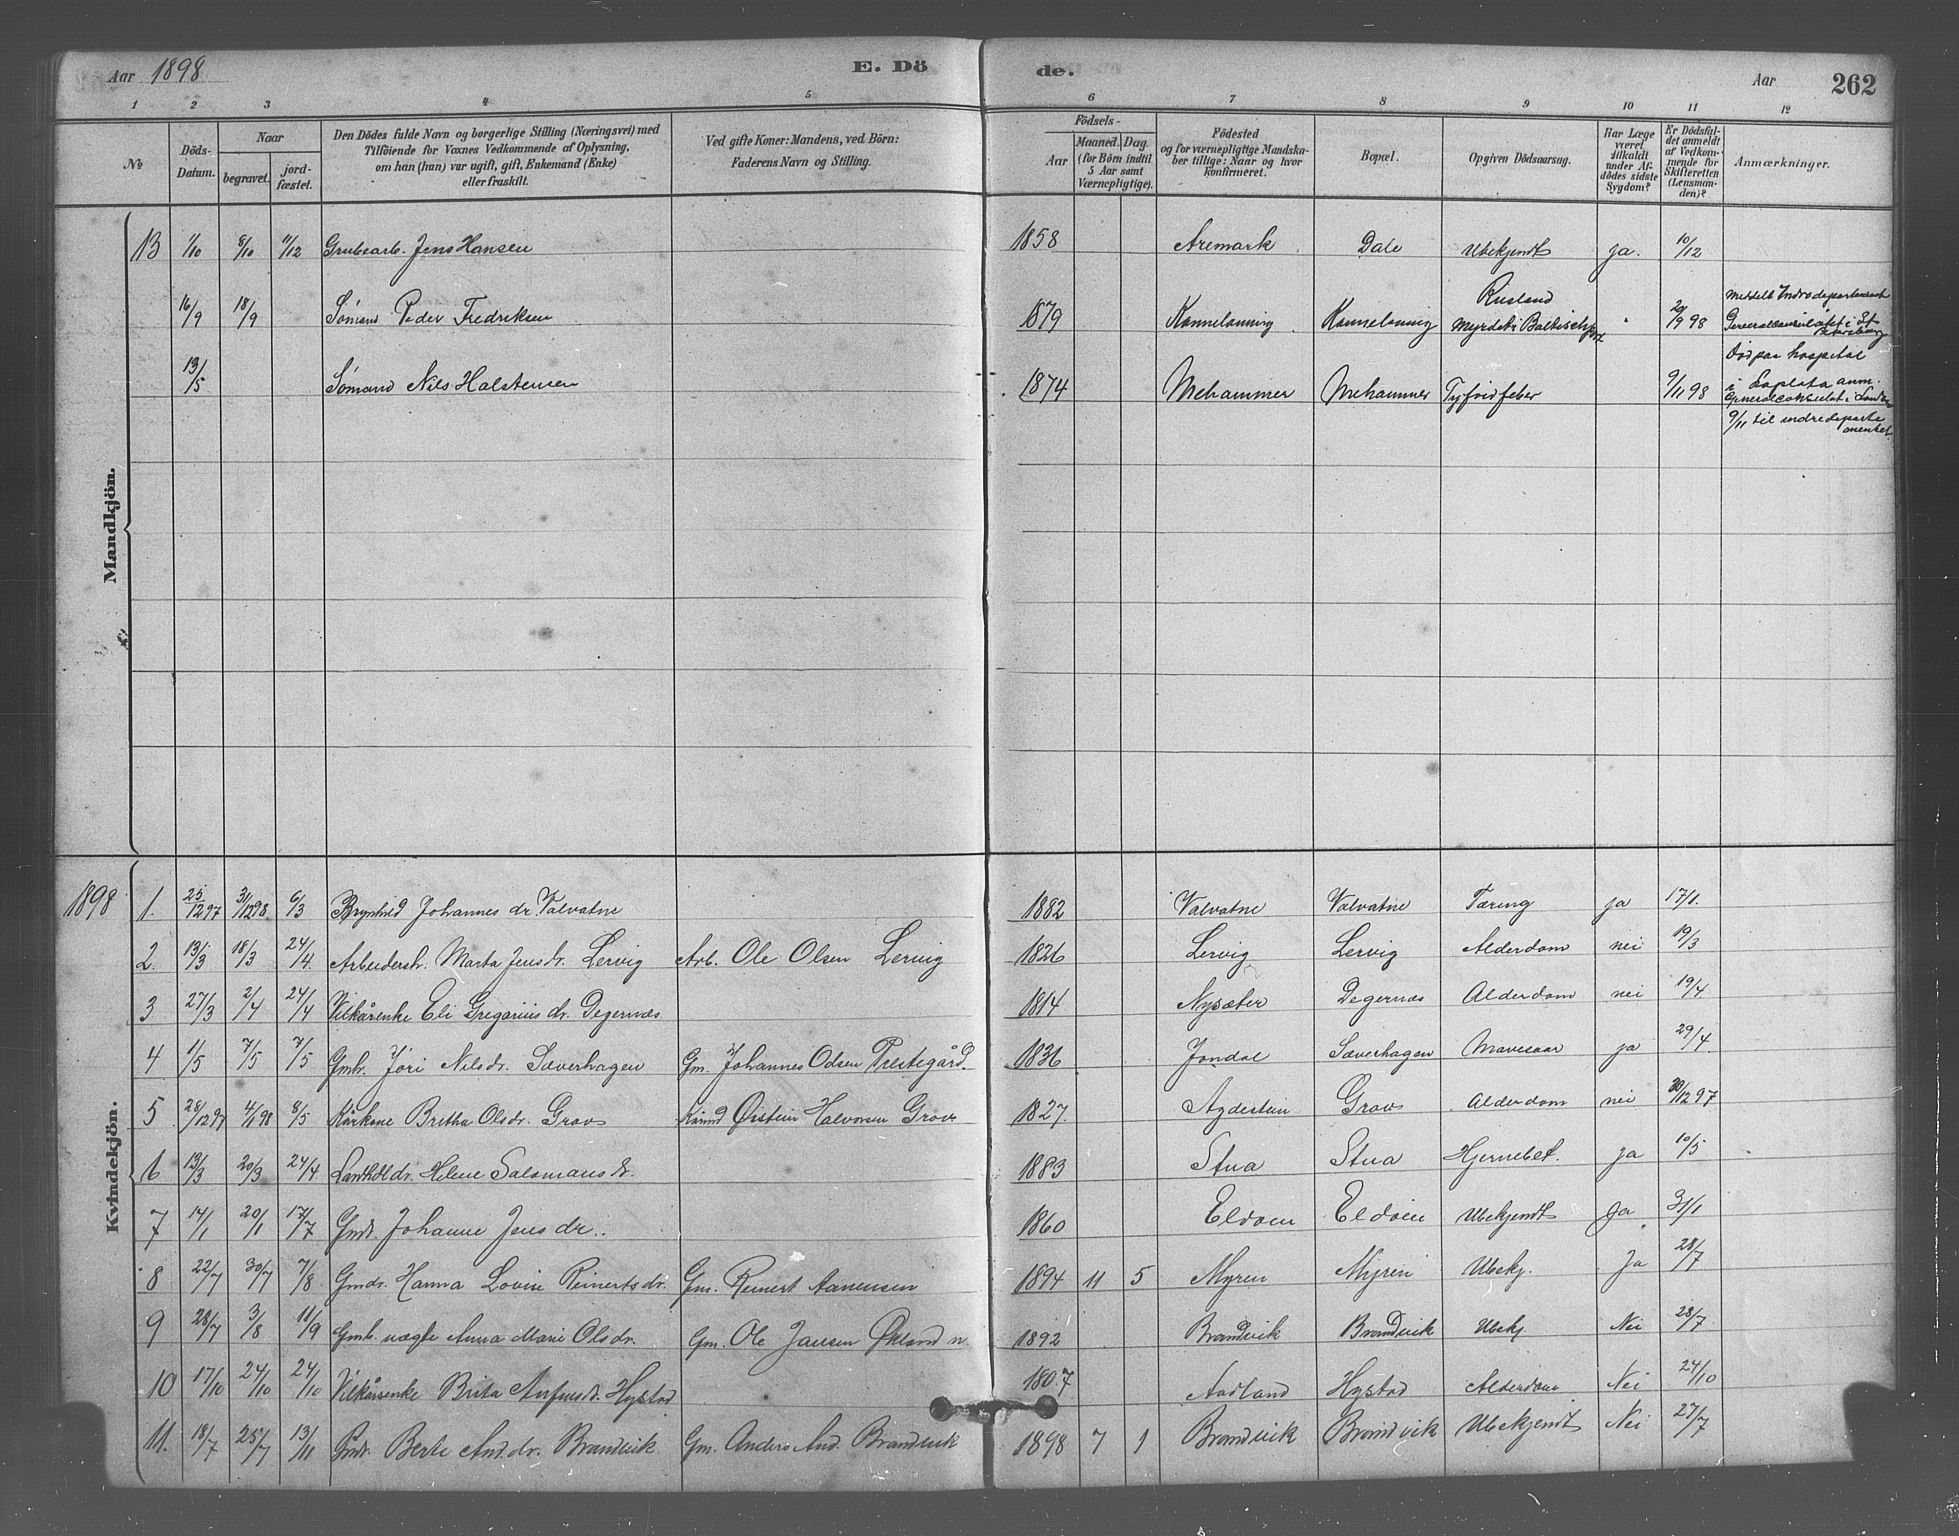 Aar 1898 E. Dö de. Aar 262
1 2 3 4 5 6 7 8 9 10 11 12
No
Döds-Datum.
Naar
begravet.
jord-fæstet.
Den Dödes fulde Navn og borgerlige Stilling (Næringsvei) med
Tilföiende for Voxnes Vedkommende af Oplysning,
om han (hun) var ugift, gift, Enkemand (Enke)
eller fraskilt.
Ved gifte Koner: Mandens, ved Börn:
Faderens Navn og Stilling.
Födsels-
Aar
Maaned. Dag.
(for Börn indtil
5 Aar samt
Værnepligtige).
Födested
og for værnepligtige Mandska-
ber tillige: Naar og hvor
konfirmeret.
Bopæl.
Opgiven Dödsaarsag.
Har Læge
været
tilkaldt
under Af-
dödes sidste
Sygdom?
Er Dödsfal-
det anmeldt
af Vedkom-
mende for
Skifteretten
(Lensman-
den)?
Anmærkninger.
Mandkjön.
13 1/10 8/10 11/12 Grubearb. Jens Hansen 1858 Aremark Dale Ubekjendt ja. 10/12
16/9 18/9 Sømand Peder Fredriksen 1879 Kanneløning Kanneløning Rusland
Myrdet i Baltischport " 29/9 98 Meddelt Indredepartement
Generalconsulatet i St.
Petersburg
13/5 Sømand Nils Halstensen 1874 Mehammer Mehammer Tyfoidfeber 9/11 98 Død paa hospital
i Laplata anm.
Generalconsulat i London
9/11 til indredeparte
mentet
Kvindekjön.
1898 1. 25/12 97 3/1 1298. 6/3 Brynhild Johannes dr. Valvatne 1882 Valvatne Valvatne Tæring ja 17/1.
2. 13/3 18/3 24/4. Arbeiderh. Marta Jensdr. Lervig Arb. Ole Olsen Lervig 1826 Lervig Lervig Alderdom nei 19/3
3 27/3 2/4 24/4 Vilkårenke Eli Gregorius dr. Degernæs 1814 Nysæter Degernæs Alderdom nei 19/4.
4 1/5 7/5 7/5 Gmk. Jöri Nilsdr. Sæverhagen Gm. Johannes Odsen Prestegård. 1836 Jondal Sæverhagen Mavesaar ja 29/4.
5 28/12 97 4/1 98 8/5 Kårkone Britha Olsdr. Grov Kårmd Øistein Halvorsen Grov 1827. Agdestein Grov Alderdom nei 30/12 97
6 13/3 20/3 24/4 Lænthol dr. Helene Salomons dr. 1883 Stua Stua Hjernebet. ja 10/5
7 14/1 20/1 17/7 Gmdr. Johanne Jens dr. 1860 Eldøen Eldøen Ubekjendt Ja 31/1
8 22/7 30/7 7/8 Gmdr. Hanna Lovise Reinerts dr. Gm. Reinert Aanensen 1894 11 5 Myren Myren Ubekj. Ja 28/7
9 28/7 3/8 11/9 Gmb. uægte Anna Marie Olsdr. Gm. Ole Jansen Økland n. 1892 Brandvik Brandvik Ubekj. Nei 28/7.
10 17/10 24/10 24/10 Vilkårsenke Brita Arfinsdr. Hystad 1807 Aadland Hystad Alderdom Nei 24/10
11. 18/7 25/7 13/11 Gmdr. Berte And. dr. Brandvik Gm. Anders And. Brandvik 1898 7 1 Brandvik Brandvik Ubekjendt Nei 27/7